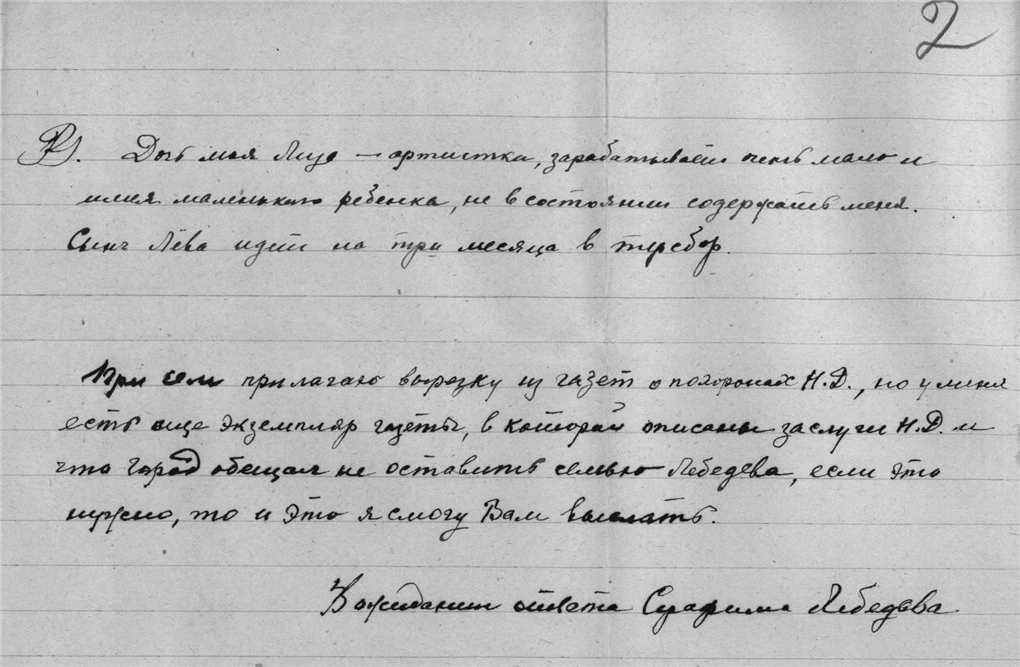 2
P.S. Дочь моя Лиза — артистка, зарабатывает очень мало и
имея маленького ребенка, не в состоянии содержать меня.
Сын Лёва идет на три месяца в терсбор.
При сем прилагаю вырезку из газет о похоронах Н.Д., но у меня
есть еще экземпляр газеты, в которой описаны заслуги Н.Д. и
что город обещал не оставить семью Лебедева, если это
нужно, то и это я смогу Вам выслать.
В ожидании ответа Серафима Лебедева